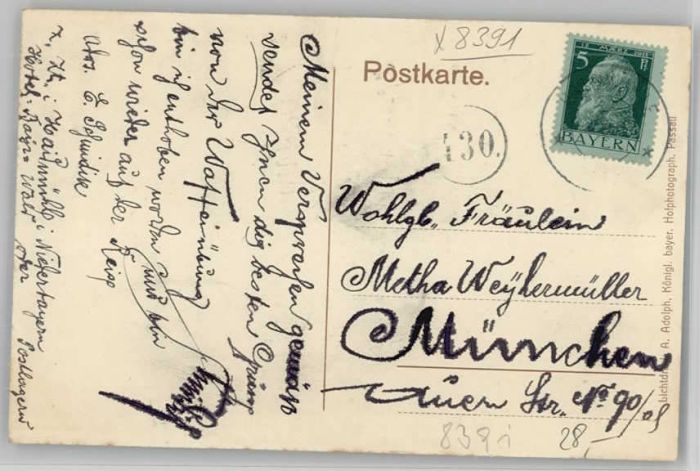 x 8391
Postkarte.
12. MÄRZ 1911
5 Pf
BAYERN
130.
Wohlgb. Fräulein
Metha Weyhermüller
München
Auen Str. Nº 90/
8391
28,-
A. Adolph, Königl. bayer. Hofphotograph, Passau
Meinem Versprechen gemäss
sendet Ihnen die besten Grüsse
von der Waffenübung
bin ich enthoben worden und bin
schon wieder auf der Reise
E. Schindike
z. Zt. i. Haidmühle i. Niederbayern
Hotel Bayr. Wald
Postlagern